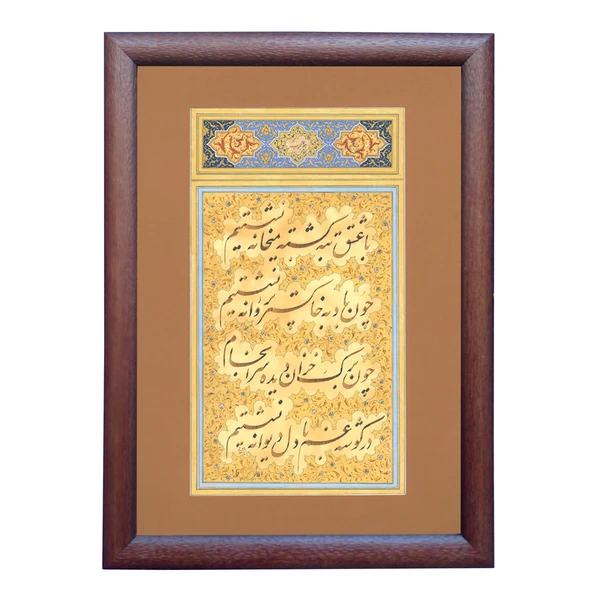 با عشق تبه گشته میخانه نشستیم
چون باد به خاکستر پروانه نشستیم
چون برگ خزان دیده سرانجام
در گوشه غم با دل دیوانه نشستیم